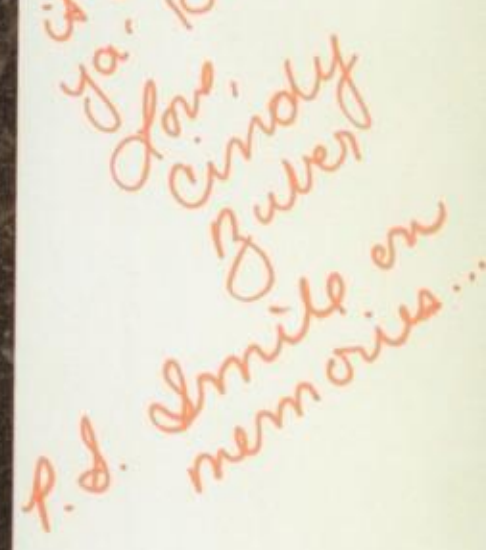 is
ya.
Love,
Cindy
Zuber
P.S. Smile on
memories...